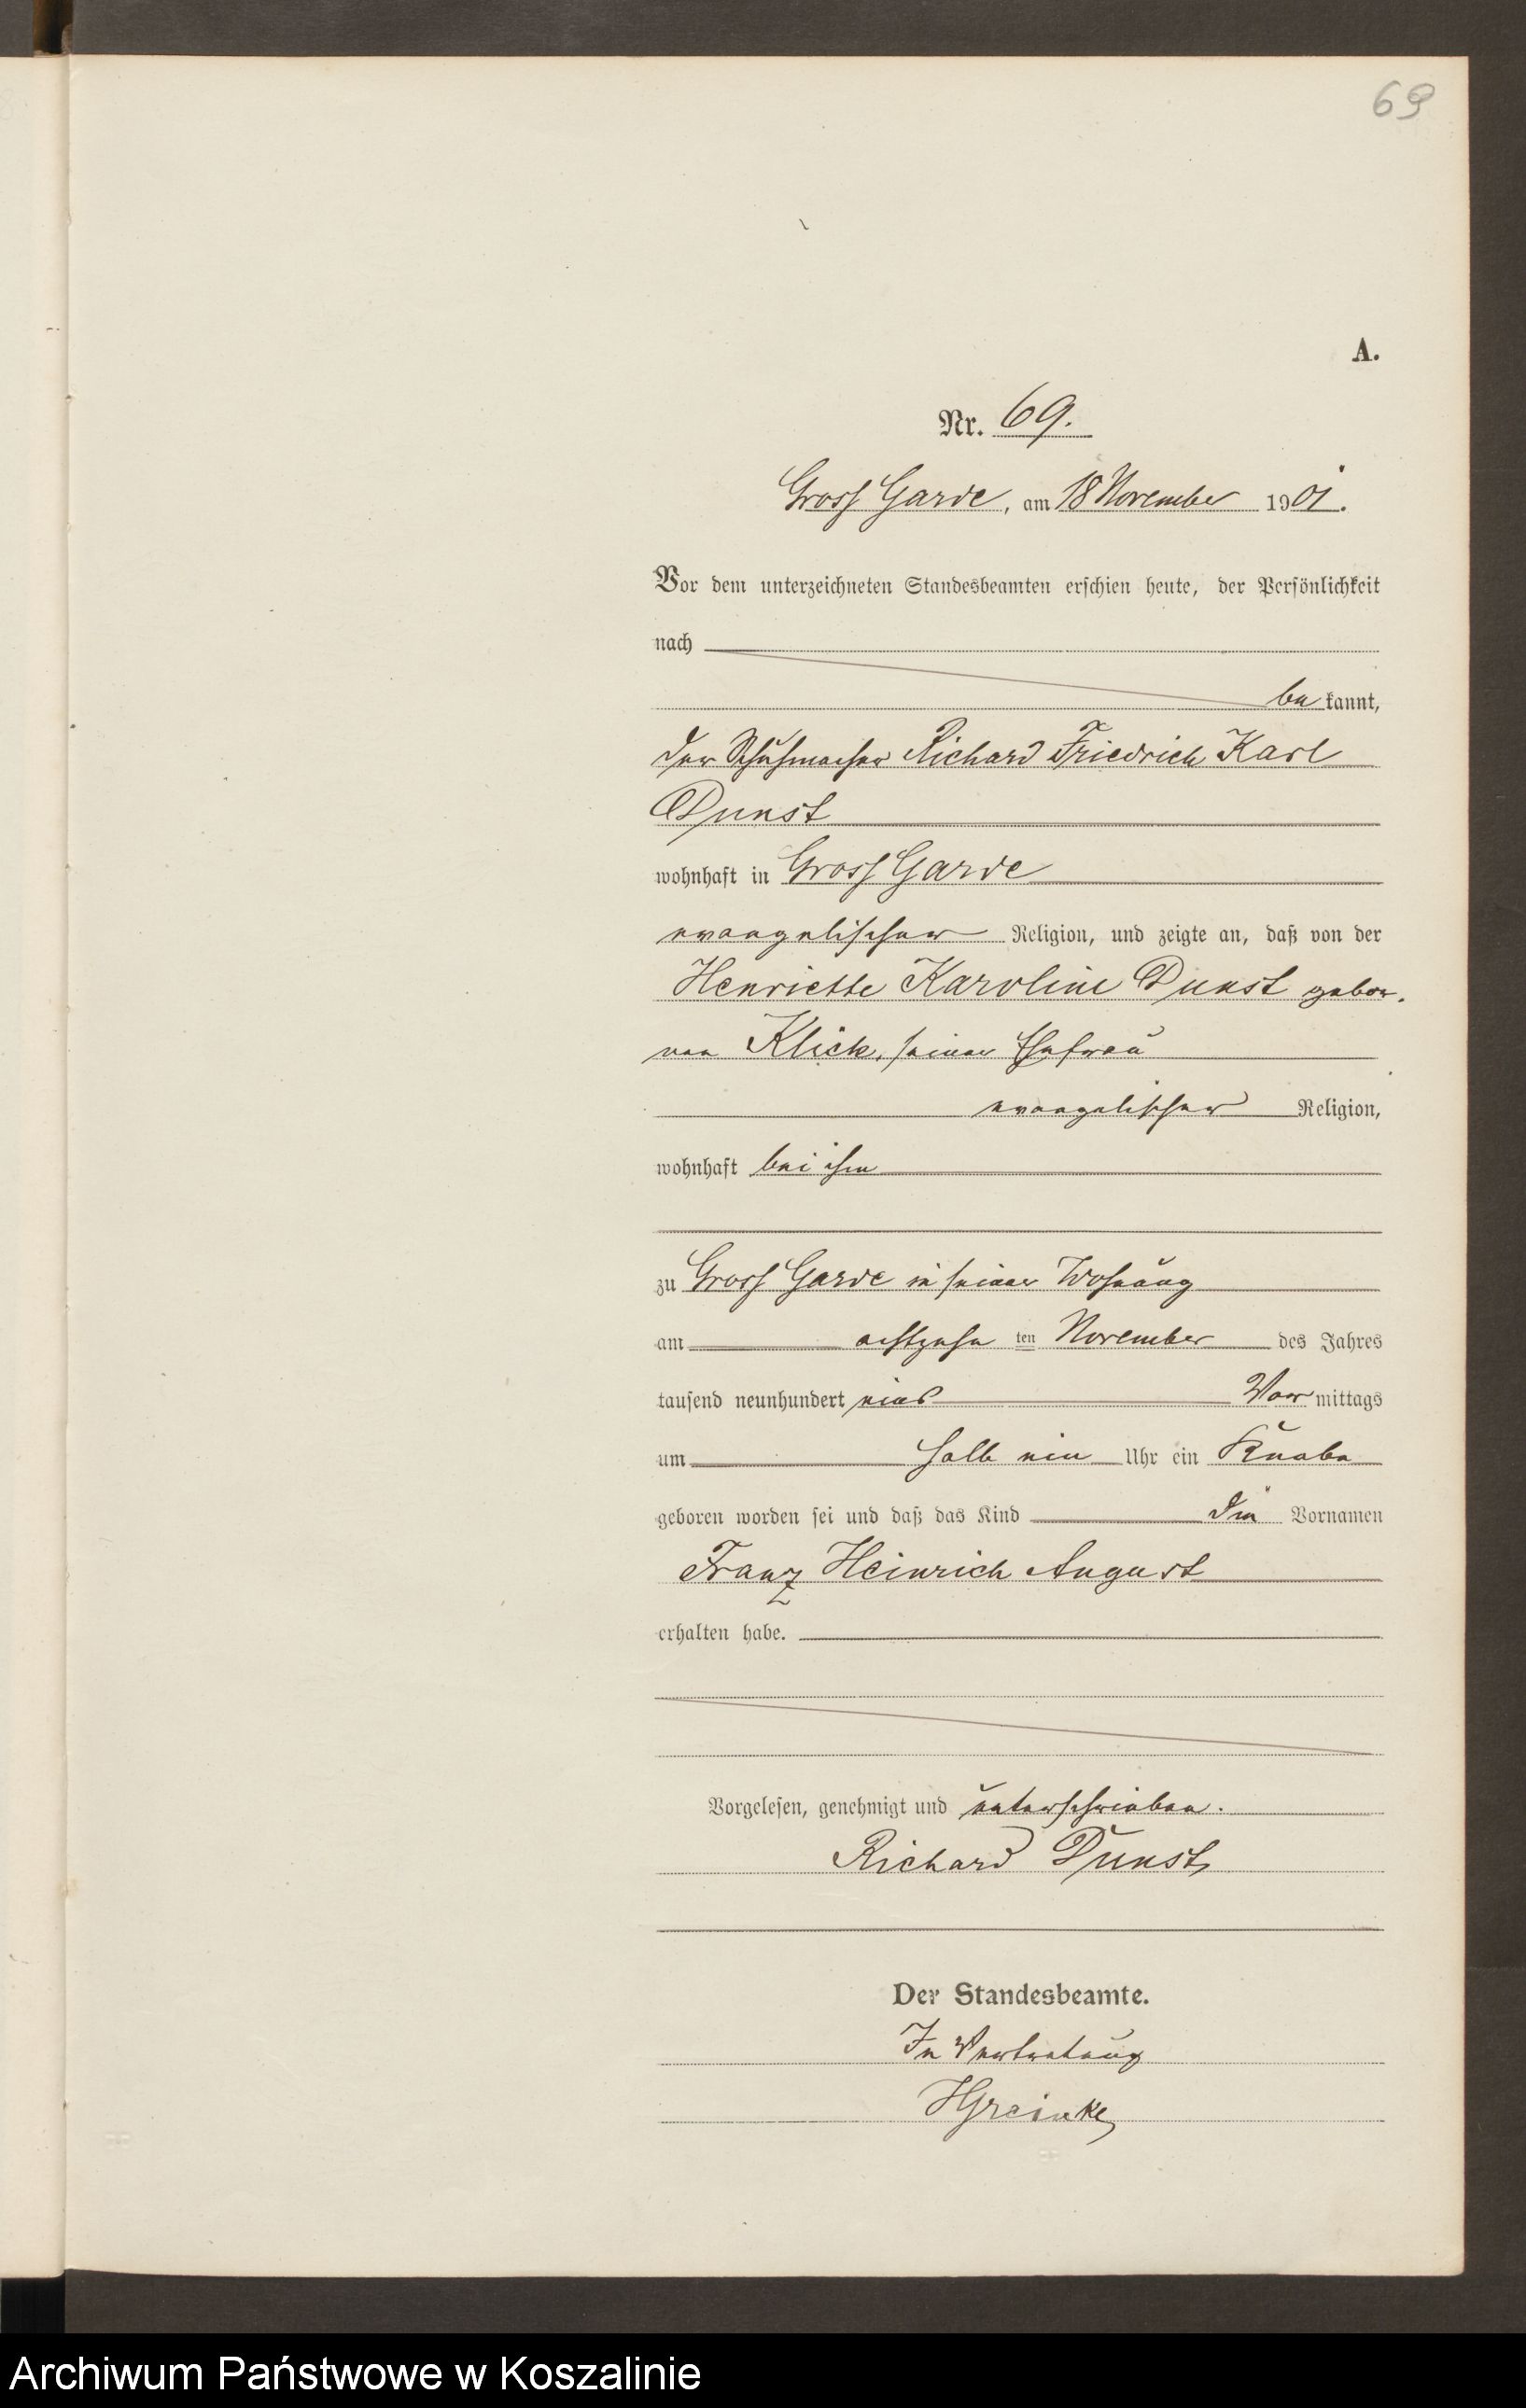 69
A.
Nr. 69.
Gross Garde, am 18 November 1901.
Vor dem unterzeichneten Standesbeamten erschien heute, der Persönlichkeit
nach
be kannt,
der Schuhmacher Richard Friedrich Karl
Dunst
wohnhaft in Gross Garde
evangelischer Religion, und zeigte an, daß von der
Henriette Karoline Dunst gebor.
nen Klick, seiner Ehefrau
evangelischer Religion,
wohnhaft bei ihm
zu Gross Garde in seiner Wohnung
am achtzehn ten November des Jahres
tausend neunhundert eins Vor mittags
um halb ein Uhr ein Knabe
geboren worden sei und daß das Kind die Vornamen
Franz Heinrich August
erhalten habe.
Vorgelesen, genehmigt und unterschrieben.
Richard Dunst
Der Standesbeamte.
In Vertretung
HGreinke
Archiwum Państwowe w Koszalinie